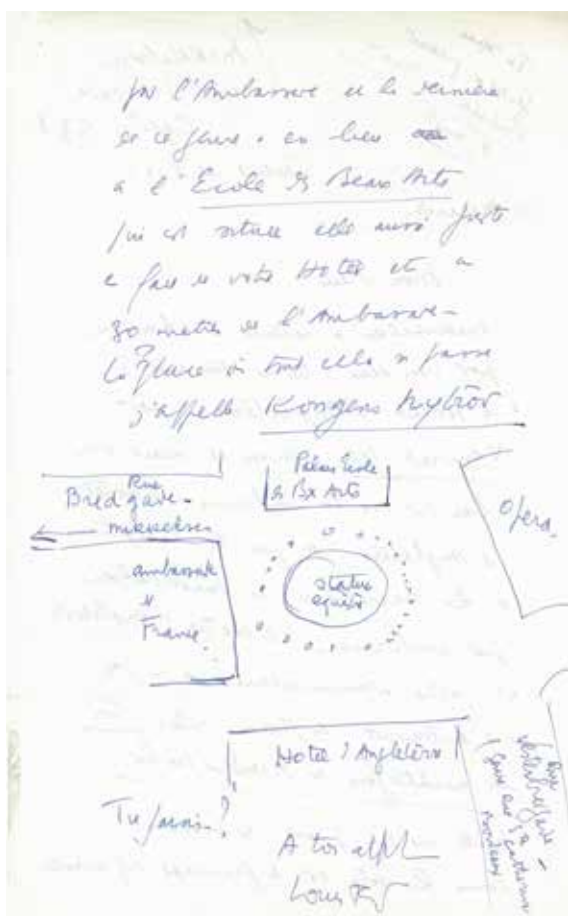 par l'Ambassade et la dernière
de ce genre a eu lieu
à l'Ecole des Beaux Arts
qui est située elle aussi juste
en face de votre Hotel et à
30 mètres de l'Ambassade
La place où tout cela se passe
s'appelle Kongens Nytorv
Palais Ecole
des Bx Arts
Rue
Bredgade
Opera.
ambassade
de
France.
statue
equestre
Hotel d'Angleterre
Rue
Tu saisis-?
A toi
Louis